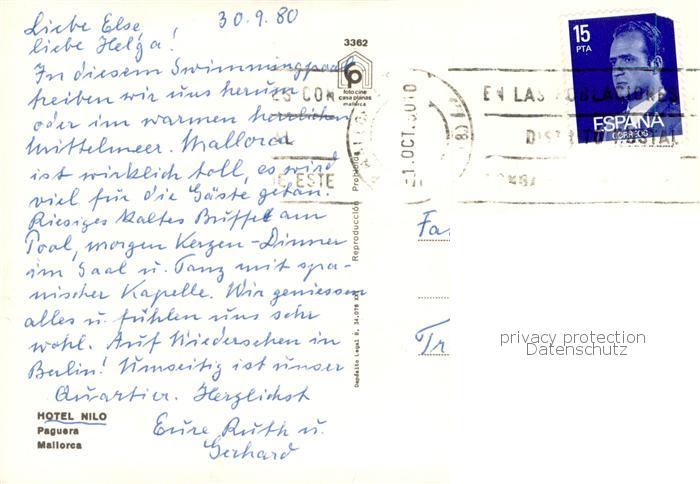 30.9.80
Liebe Else,
liebe Helga!
In diesem Swimmingpool
treiben wir uns herum
oder im warmen herrlichen
Mittelmeer. Mallorca
ist wirklich toll, es wird
viel für die Gäste getan.
Riesiges kaltes Büffet am
Pool, morgen Kerzen-Dinner
im Saal u. Tanz mit spa-
nischer Kapelle. Wir geniessen
alles u. fühlen uns sehr
wohl. Auf Wiedersehen in
Berlin! Umseitig ist unser
Quartier. Herzlichst
Eure Ruth u.
Gerhard
HOTEL NILO
Paguera
Mallorca
3362
foto cine
casa planas
mallorca
Reproducción Prohibida
Depósito Legal B. 34.076 XX
15
PTA
ESPAÑA
CORREOS
ES CON
E ESTE
1 OCT. 80
EN LAS POBLACIONES
DISTRITO POSTAL
Fa
Tr
privacy protection
Datenschutz